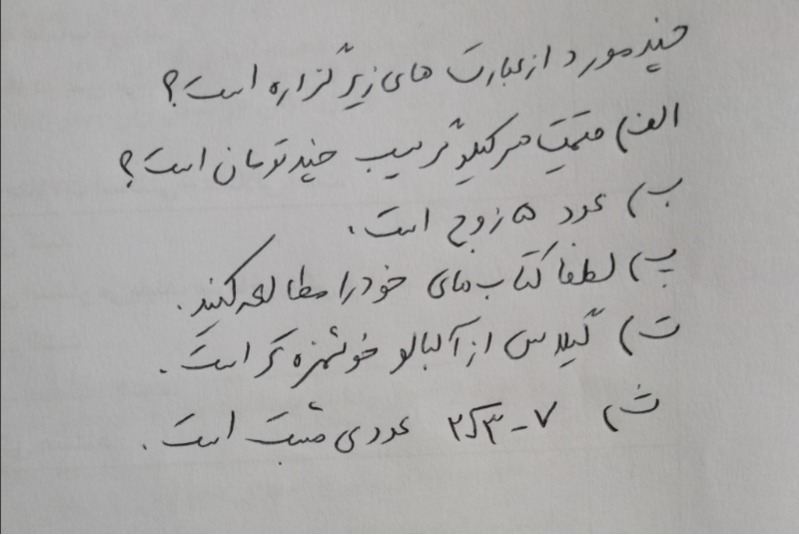 چند مورد از عبارت های زیر گزاره است؟
الف) قیمت هر کیلو گرم سیب چند تومان است؟
ب) عدد ۵ زوج است.
پ) لطفا کتاب های خود را مطالعه کنید.
ت) گیلاس از آلبالو خوشمزه تر است.
ث) ۷ - ۲√۳ عددی مثبت است.